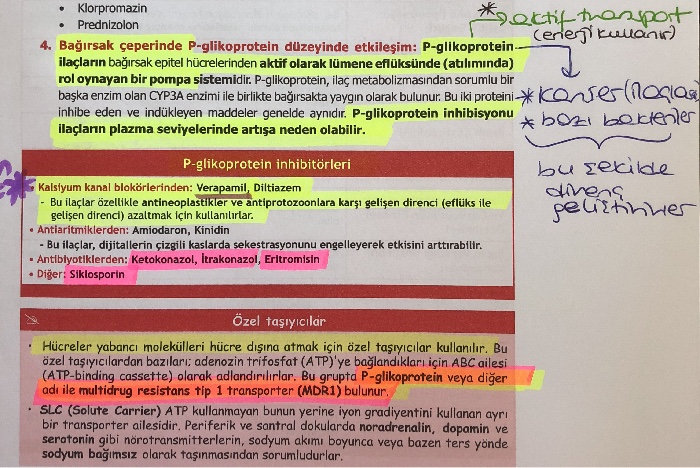 • Klorpromazin
• Prednizolon
4. Bağırsak çeperinde P-glikoprotein düzeyinde etkileşim: P-glikoprotein
ilaçların bağırsak epitel hücrelerinden aktif olarak lümene eflüksünde (atılımında)
rol oynayan bir pompa sistemidir. P-glikoprotein, ilaç metabolizmasından sorumlu bir
başka enzim olan CYP3A enzimi ile birlikte bağırsakta yaygın olarak bulunur. Bu iki proteini
inhibe eden ve indükleyen maddeler genelde aynıdır. P-glikoprotein inhibisyonu
ilaçların plazma seviyelerinde artışa neden olabilir.
* aktif transport
(enerji kullanır)
* kanser ilaçları
* bazı bakteriler
bu şekilde
direnç
geliştirirler
P-glikoprotein inhibitörleri
• Kalsiyum kanal blokörlerinden: Verapamil, Diltiazem
- Bu ilaçlar özellikle antineoplastikler ve antiprotozoonlara karşı gelişen direnci (eflüks ile
gelişen direnci) azaltmak için kullanılırlar.
• Antiaritmiklerden: Amiodaron, Kinidin
- Bu ilaçlar, dijitallerin çizgili kaslarda sekestrasyonunu engelleyerek etkisini arttırabilir.
• Antibiyotiklerden: Ketokonazol, İtrakonazol, Eritromisin
• Diğer: Siklosporin
Özel taşıyıcılar
• Hücreler yabancı molekülleri hücre dışına atmak için özel taşıyıcılar kullanılır. Bu
özel taşıyıcılardan bazıları; adenozin trifosfat (ATP)'ye bağlandıkları için ABC ailesi
(ATP-binding cassette) olarak adlandırılırlar. Bu grupta P-glikoprotein veya diğer
adı ile multidrug resistans tip 1 transporter (MDR1) bulunur.
• SLC (Solute Carrier) ATP kullanmayan bunun yerine iyon gradiyentini kullanan ayrı
bir transporter ailesidir. Periferik ve santral dokularda noradrenalin, dopamin ve
serotonin gibi nörotransmitterlerin, sodyum akımı boyunca veya bazen ters yönde
sodyum bağımsız olarak taşınmasından sorumludurlar.